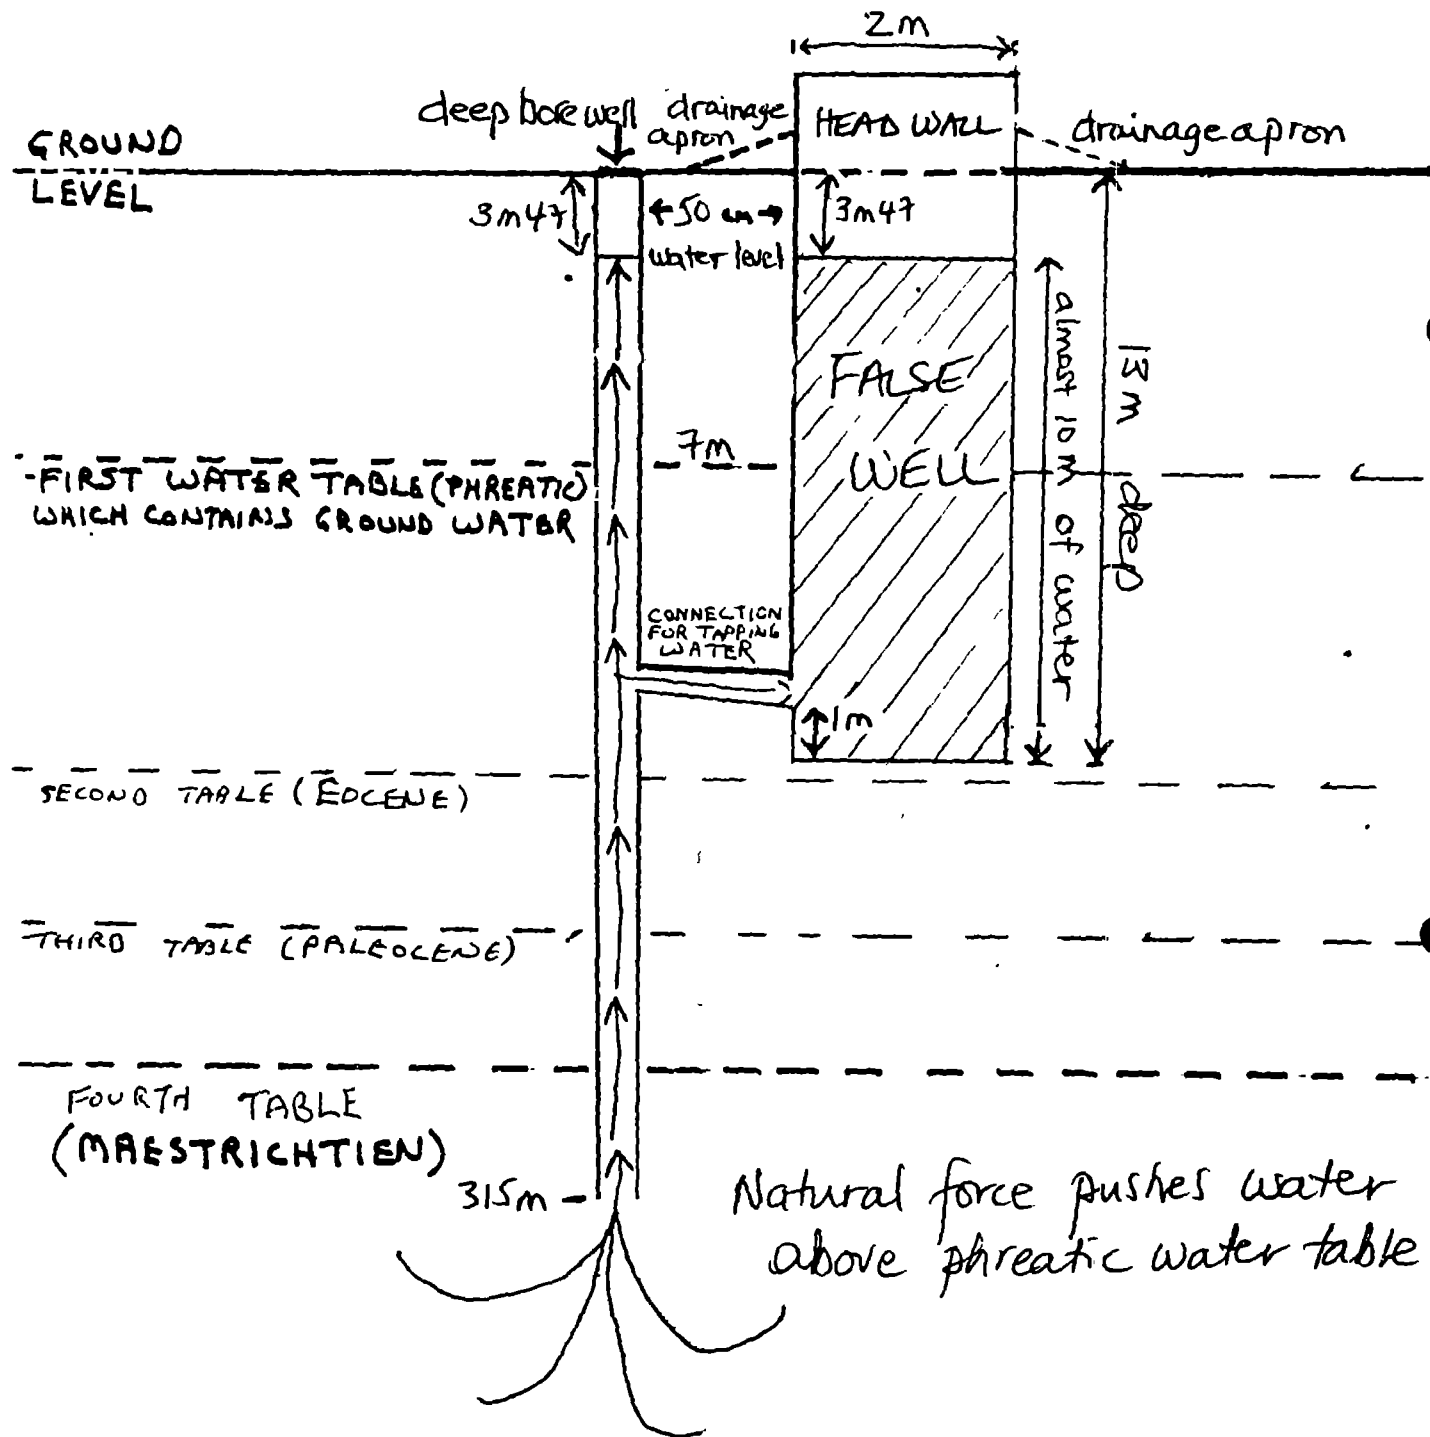 2m
deep bore well
drainage
apron
HEAD WALL
drainage apron
GROUND
LEVEL
3m47
50 cm
3m47
water level
almost 10 m of water
13 m deep
FALSE
WELL
7m
-FIRST WATER TABLE (PHREATIC)
WHICH CONTAINS GROUND WATER
CONNECTION
FOR TAPPING
WATER
1m
SECOND TABLE (EOCENE)
THIRD TABLE (PALEOCENE)
FOURTH TABLE
(MAESTRICHTIEN)
315m
Natural force pushes water
above phreatic water table